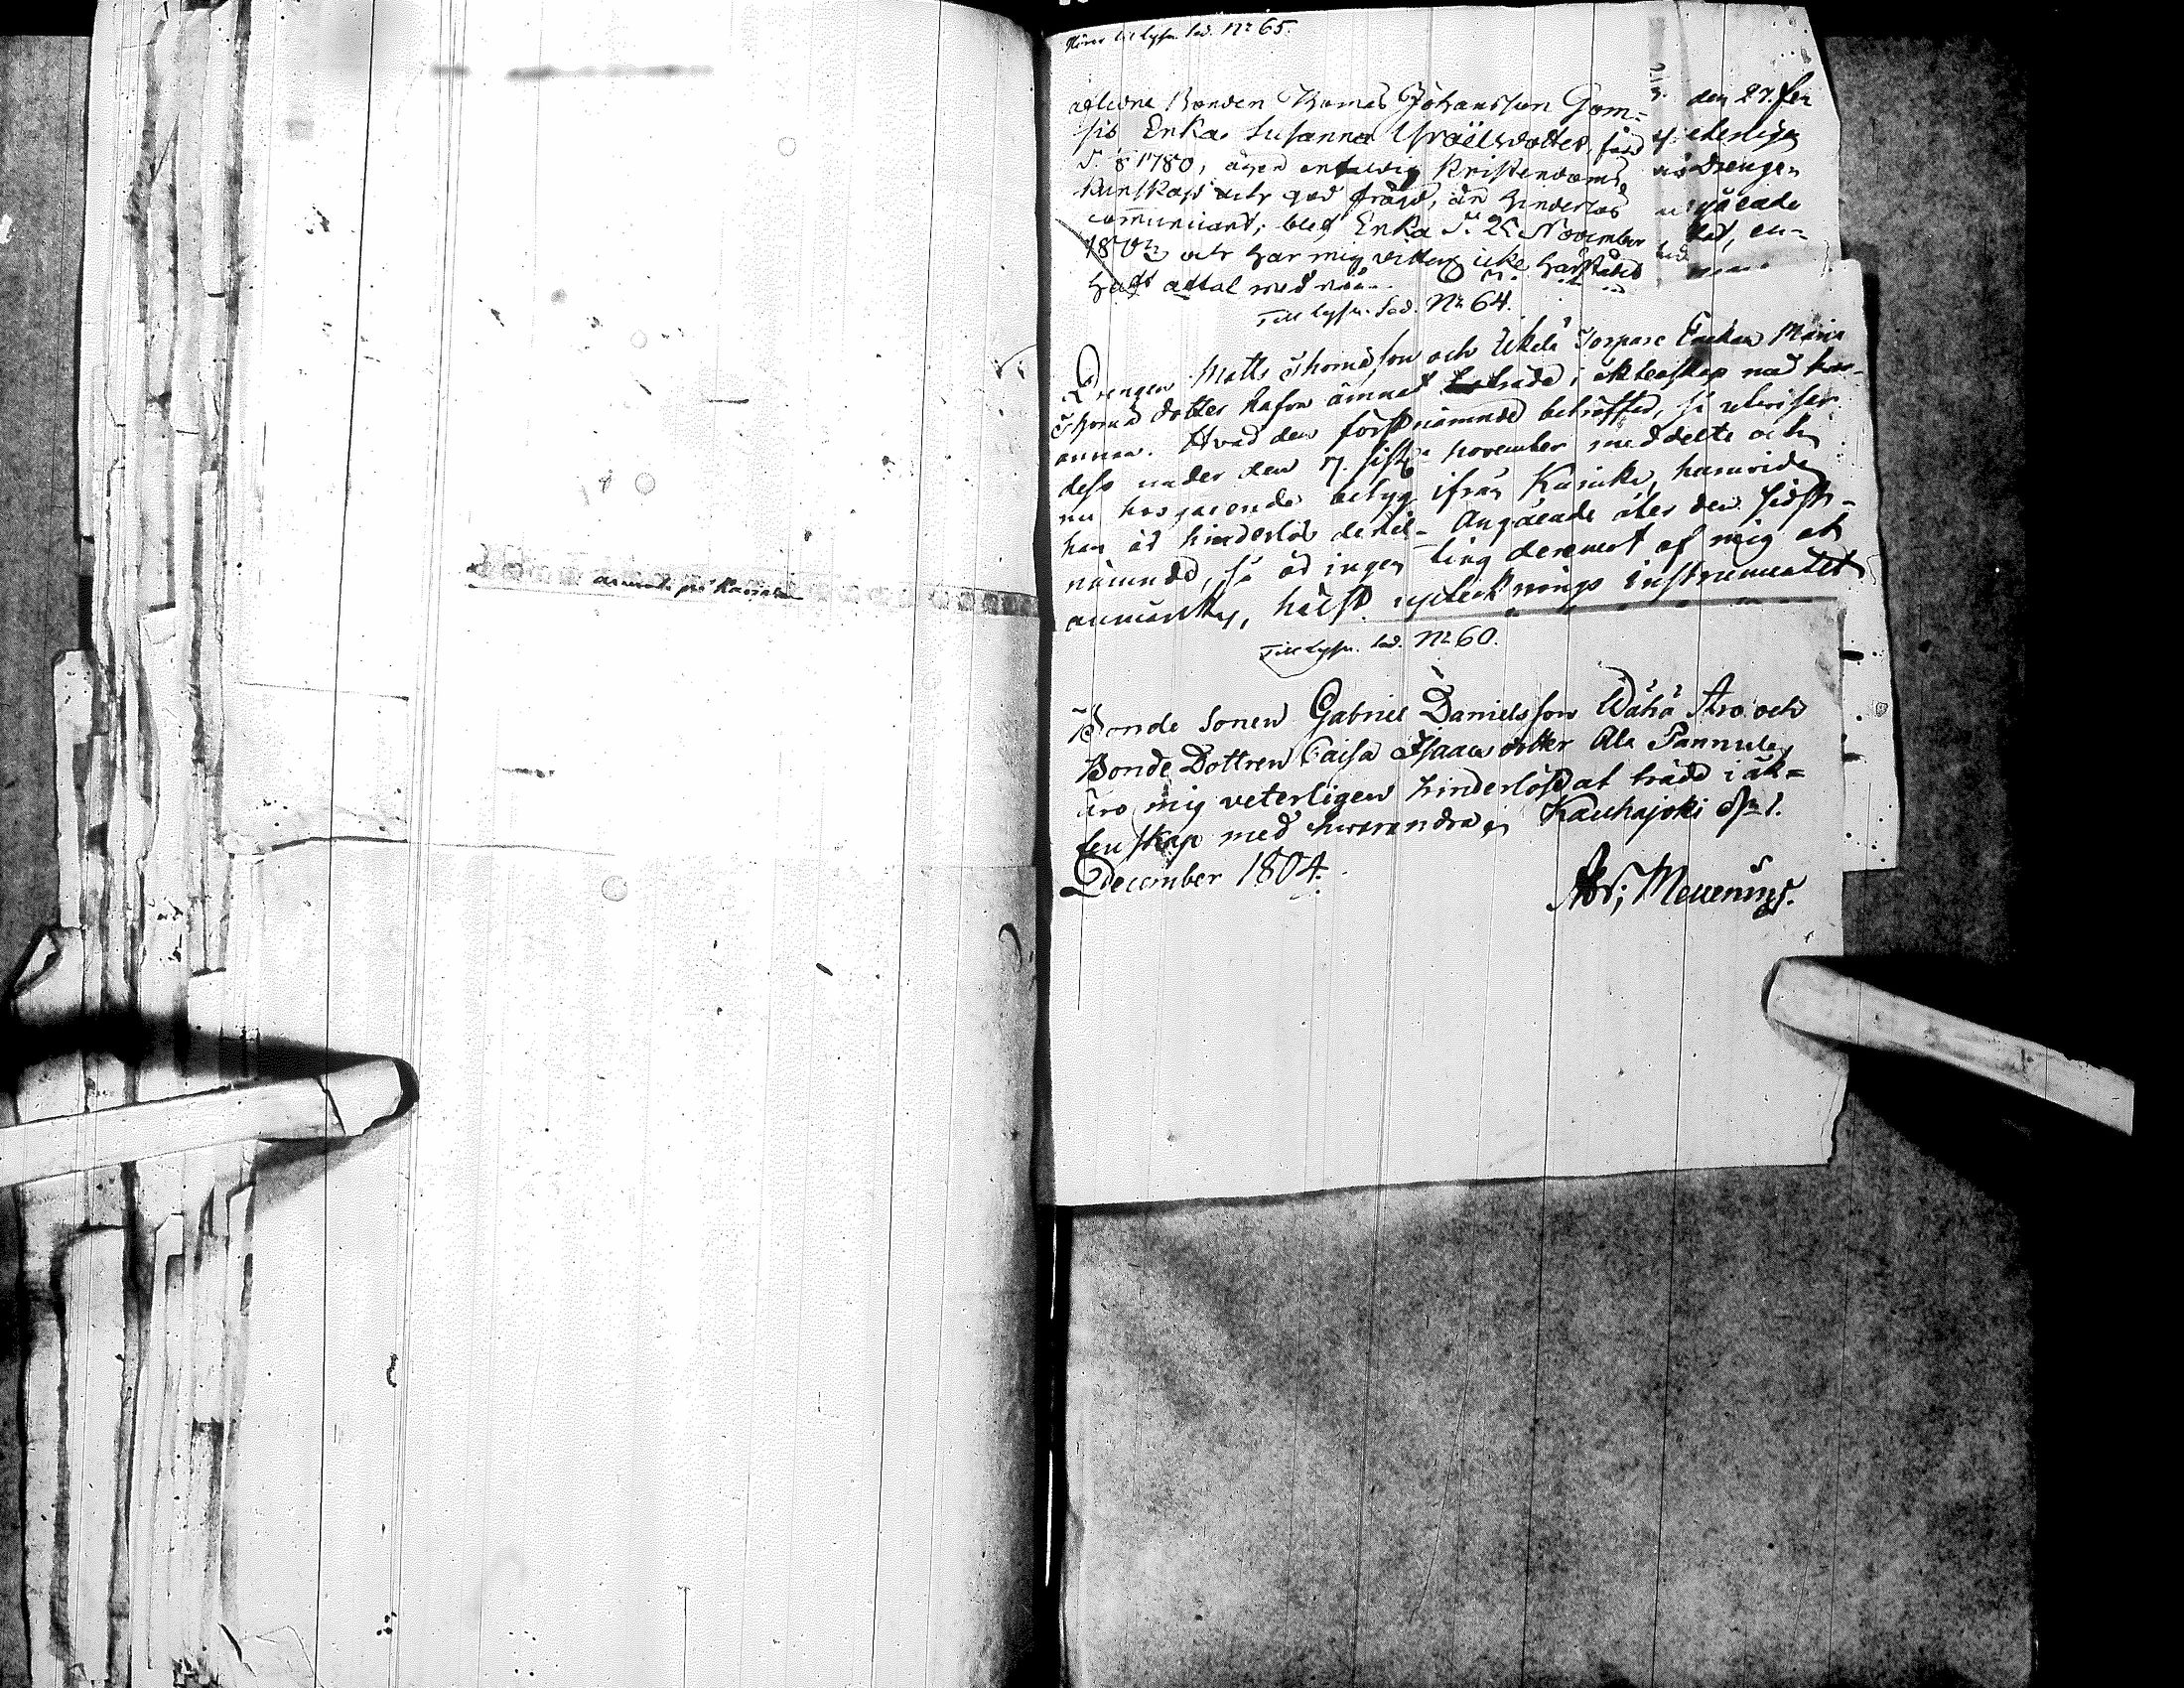 anmält på Kansala
Hörer till lysn. Sed. No 65.
aflidne Bonden Thomas Johansson Gom=
sis Enka Susanna Israëlsdotter, född
d. 8 1780, ägen enfaldig Kristendoms
kunskap och god frägd, är hinderlös
communicant; blef Enka d. 25 November
1803 och har mig vitterl icke härstädes
haft aftal med någon
den 27. Feb
eterligen
Drengen
gåeade
tet, en=
Till lysn. Sed. No 64.
Drengen Matts Thomasson och Ukela Torpare Enckan Maria
Thomas dotter hafva ämnat träda i äktenskap med hvar-
annan. Hvad den förstnämnde beträffar, så utvisar
dess under den 7. sistl. November meddelte och
nu hosgående betyg ifrån Kuricka, huruvida
han är hinderlös dertil- Angåeade åter den sidst-
nämnde, så är ingen ting deremot af mig at
anmärka, hälst uptecknings instrumentet
Till lysn. Sed. No 60.
Bonde Sonen Gabriel Danielsson Wähä Aro och
Bonde Dottren Caisa Isaacsdotter Ala Pannula
äro mig veterligen hinderlöse at träda i äk=
tenskap med hvarandra, Kauhajoki d. 1.
December 1804.